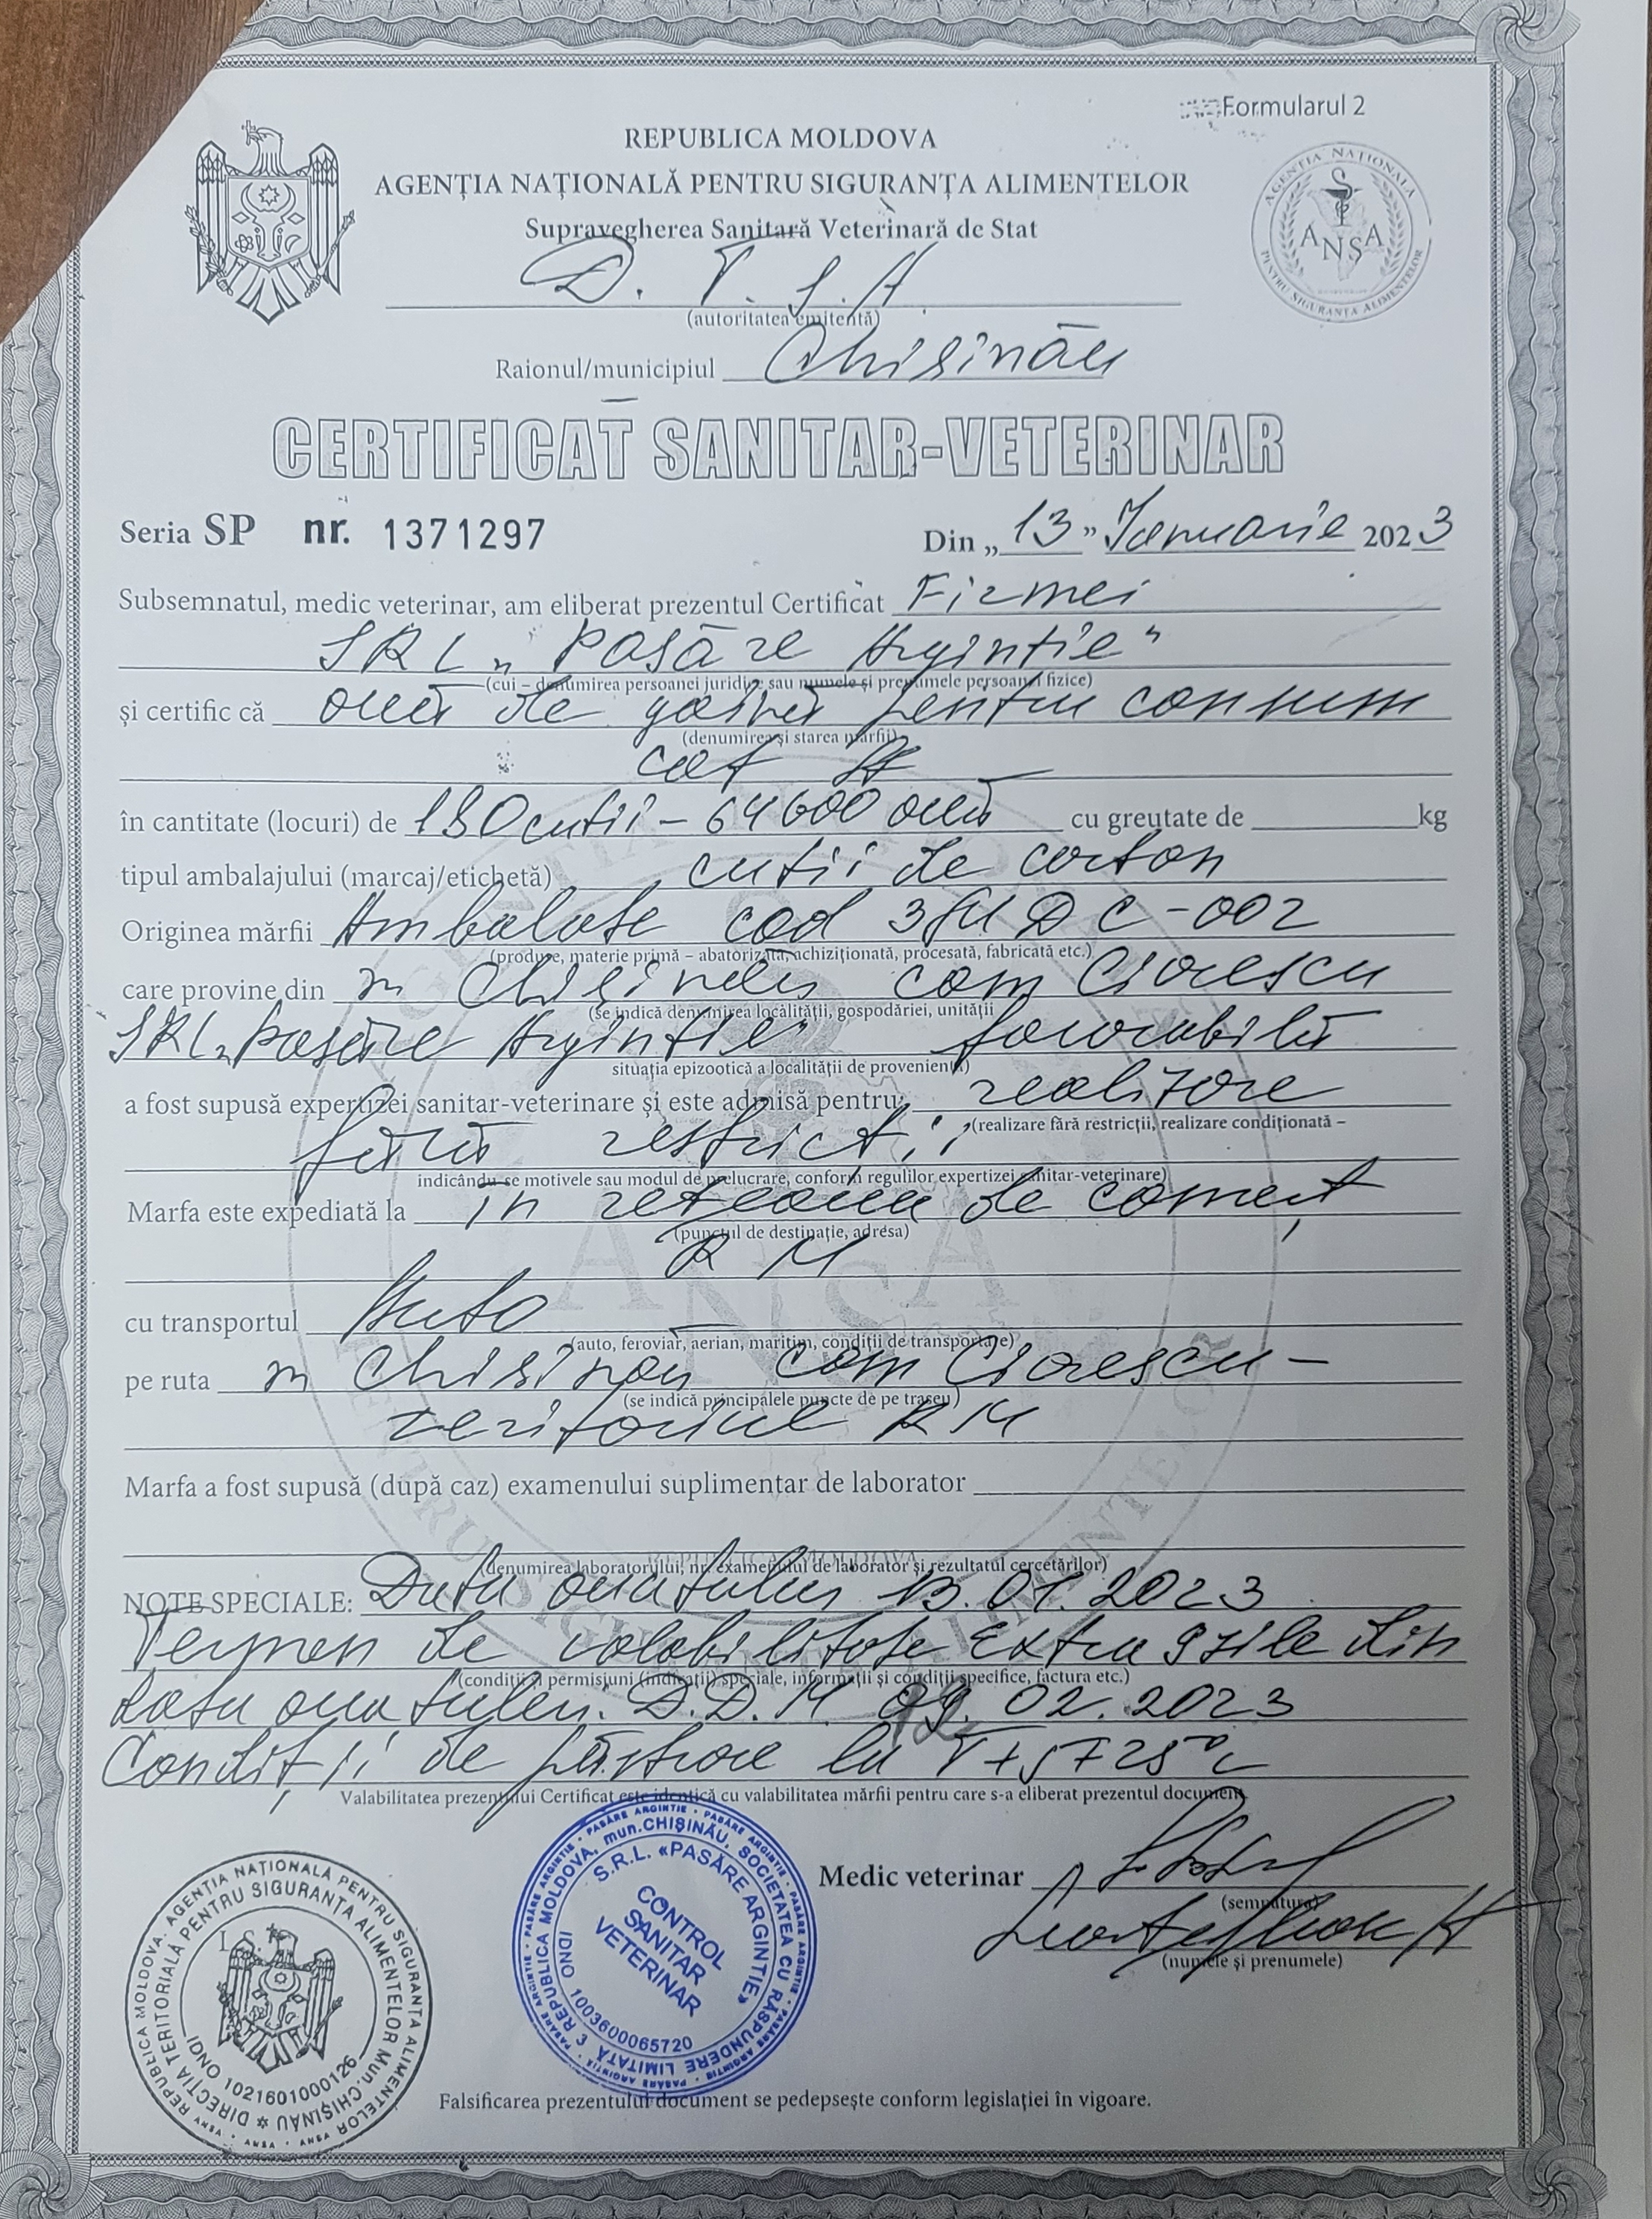 Formularul 2
REPUBLICA MOLDOVA
AGENȚIA NAȚIONALĂ PENTRU SIGURANȚA ALIMENTELOR
Supravegherea Sanitară Veterinară de Stat
AGENȚIA NAȚIONALĂ PENTRU SIGURANȚA ALIMENTELOR
ANSA
D. T. S. A
(autoritatea emitentă)
Raionul/municipiul Chisinău
CERTIFICAT SANITAR-VETERINAR
Seria SP nr. 1371297 Din „13” Ianuarie 2023
Subsemnatul, medic veterinar, am eliberat prezentul Certificat Firmei
SRL „Pasăre Argintie"
(cui – denumirea persoanei juridice sau numele și prenumele persoanei fizice)
și certific că ouă de găină pentru consum
(denumirea și starea mărfii)
cat A
în cantitate (locuri) de 180 cutii – 64600 ouă cu greutate de kg
tipul ambalajului (marcaj/etichetă) cutii de carton
Originea mărfii Ambalate cod 3 MD C-002
(produse, materie primă – abatorizată, achiziționată, procesată, fabricată etc.)
care provine din m Chișinău com Ciorescu
(se indică denumirea localității, gospodăriei, unității
SRL „Pasăre Argintie" favorabilă
situația epizootică a localității de proveniență)
a fost supusă expertizei sanitar-veterinare și este admisă pentru: realizare
(realizare fără restricții, realizare condiționată –
fără restricții
indicându-se motivele sau modul de prelucrare, conform regulilor expertizei sanitar-veterinare)
Marfa este expediată la în rețeaua de comerț
(punctul de destinație, adresa)
R M
cu transportul Auto
(auto, feroviar, aerian, maritim, condiții de transportare)
pe ruta m Chisinău com Ciorescu –
(se indică principalele puncte de pe traseu)
teritoriul R M
Marfa a fost supusă (după caz) examenului suplimentar de laborator
(denumirea laboratorului, nr. examenului de laborator și rezultatul cercetărilor)
NOTE SPECIALE: Data ouatului 13.01.2023
Termen de valabilitate Extra 9 zile din
(condiții și permisiuni (indicații) speciale, informații și condiții specifice, factura etc.)
data ouatului. D.D.M. 02.2023
Condiții de păstrare la T +5 + 25°C
Valabilitatea prezentului Certificat este identică cu valabilitatea mărfii pentru care s-a eliberat prezentul document
Medic veterinar
(semnătura)
(numele și prenumele)
REPUBLICA MOLDOVA, AGENȚIA NAȚIONALĂ PENTRU SIGURANȚA ALIMENTELOR
DIRECȚIA TERITORIALĂ PENTRU SIGURANȚA ALIMENTELOR Mun. CHIȘINĂU
IDNO 1021601000126
REPUBLICA MOLDOVA, mun.CHIȘINĂU, SOCIETATEA CU RĂSPUNDERE LIMITATĂ 3
S.R.L. «PASĂRE ARGINTIE»
CONTROL
SANITAR
VETERINAR
IDNO 1003600065720
Falsificarea prezentului document se pedepsește conform legislației în vigoare.